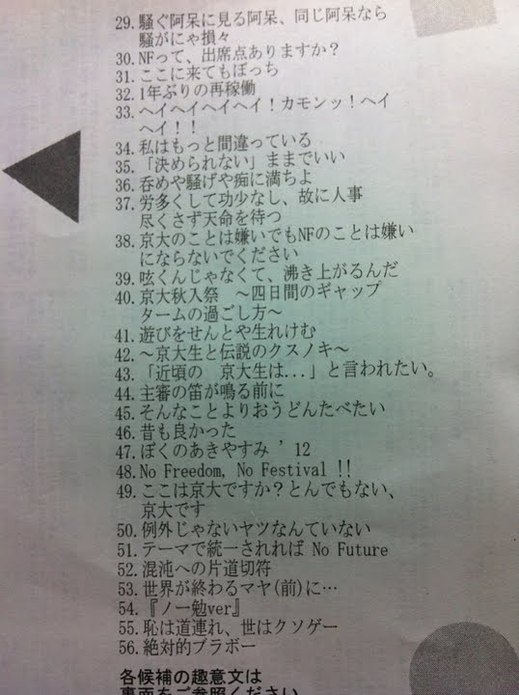 29. 騒ぐ阿呆に見る阿呆、同じ阿呆なら
騒がにゃ損々
30. NFって、出席点ありますか？
31. ここに来てもぼっち
32. 1年ぶりの再稼働
33. ヘイヘイヘイヘイ！カモンッ！ヘイ
ヘイ！！
34. 私はもっと間違っている
35. 「決められない」ままでいい
36. 呑めや騒げや痴に満ちよ
37. 労多くして功少なし、故に人事
尽くさず天命を待つ
38. 京大のことは嫌いでもNFのことは嫌い
にならないでください
39. 呟くんじゃなくて、沸き上がるんだ
40. 京大秋入祭　～四日間のギャップ
タームの過ごし方～
41. 遊びをせんとや生れけむ
42. ～京大生と伝説のクスノキ～
43. 「近頃の　京大生は...」と言われたい。
44. 主審の笛が鳴る前に
45. そんなことよりおうどんたべたい
46. 昔も良かった
47. ぼくのあきやすみ ’12
48. No Freedom, No Festival !!
49. ここは京大ですか？とんでもない、
京大です
50. 例外じゃないヤツなんていない
51. テーマで統一されれば No Future
52. 混沌への片道切符
53. 世界が終わるマヤ(前)に…
54. 『ノー勉ver』
55. 恥は道連れ、世はクソゲー
56. 絶対的ブラボー
各候補の趣意文は
裏面をご参照ください